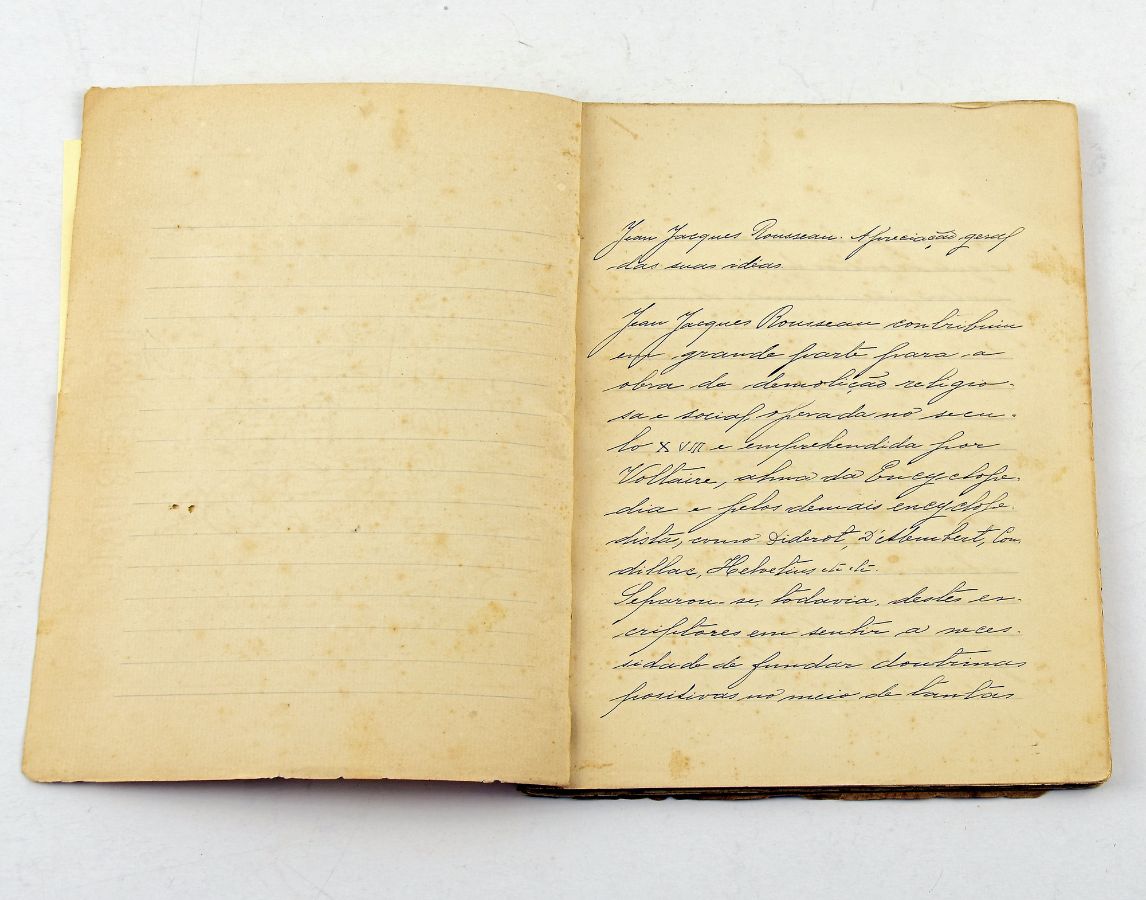 Jean Jacques Rousseau. Apreciação geral
das suas idéas
Jean Jacques Rousseau contribuiu
em grande parte para a
obra de demolição religio-
sa e social, operada no secu-
lo XVIII e emprehendida por
Voltaire, alma da Encyclope-
dia e pelos demais encyclope-
distas, como Diderot, D'Alembert, Con-
dillac, Helvetius etc. etc.
Separou-se, todavia, destes es-
criptores em sentir a neces-
sidade de fundar doutrinas
positivas no meio de tantas